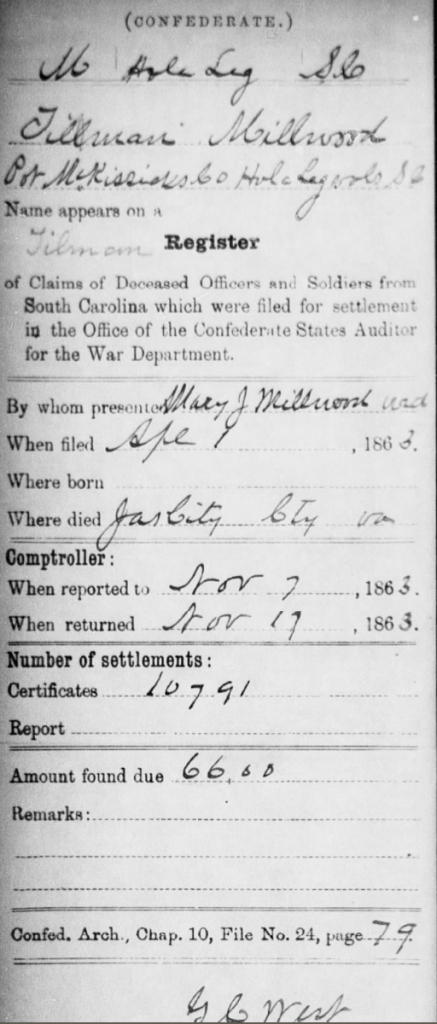 (CONFEDERATE.)
M Hole Leg S C
Tillman Millwood
Pvt McKissicks Co Hole Leg vols S C
Name appears on a
Tilman Register
of Claims of Deceased Officers and Soldiers from
South Carolina which were filed for settlement
in the Office of the Confederate States Auditor
for the War Department.
By whom presented Mary J Millwood wid
When filed Apl 1, 1863.
Where born
Where died Jas City Cty va
Comptroller:
When reported to Nov 7, 1863.
When returned Nov 17, 1863.
Number of settlements:
Certificates 10791
Report
Amount found due 66.00
Remarks:
Confed. Arch., Chap. 10, File No. 24, page 79
G C West